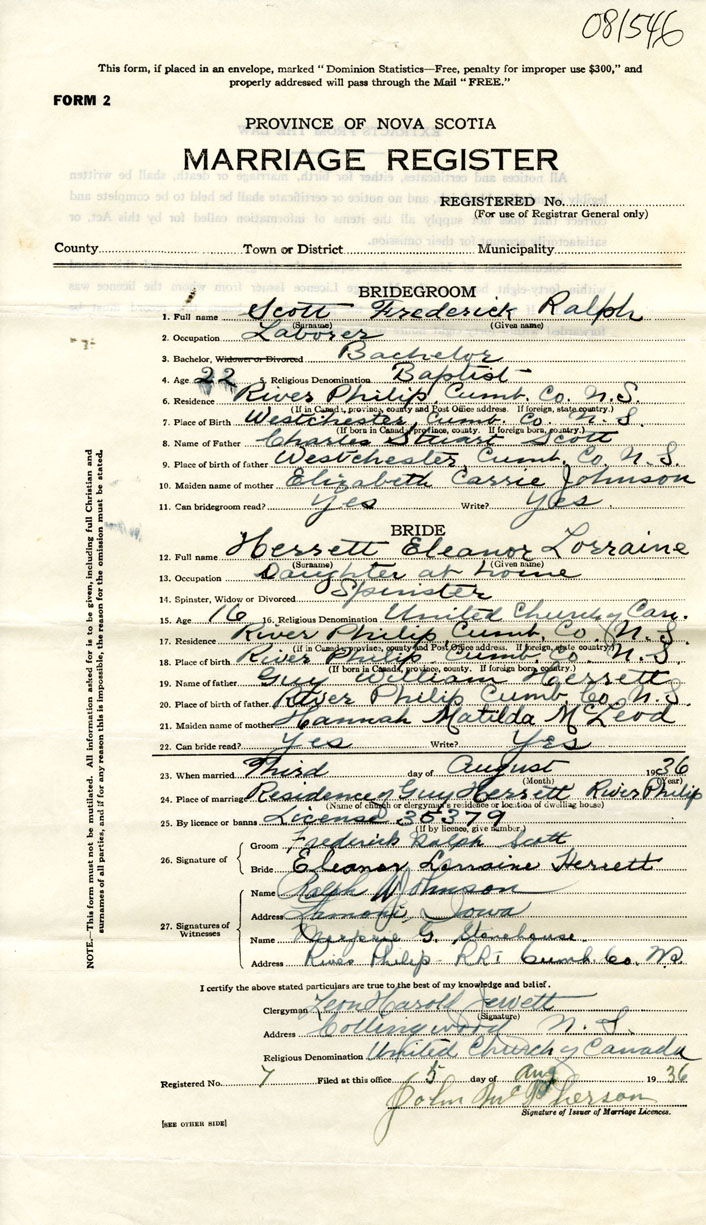 081546
This form, if placed in an envelope, marked "Dominion Statistics—Free, penalty for improper use $300," and
properly addressed will pass through the Mail "FREE."
FORM 2
PROVINCE OF NOVA SCOTIA
MARRIAGE REGISTER
REGISTERED No.
(For use of Registrar General only)
County Town or District Municipality
BRIDEGROOM
1. Full name Scott Frederick Ralph
(Surname) (Given name)
2. Occupation Laborer
3. Bachelor, Widower or Divorced Bachelor
4. Age 22 5. Religious Denomination Baptist
6. Residence River Philip, Cumb. Co. N.S.
(If in Canada, province, county and Post Office address. If foreign, state country.)
7. Place of Birth Westchester, Cumb. Co. N.S.
(If born in Canada, province, county. If foreign born, country.)
8. Name of Father Charles Stuart Scott
9. Place of birth of father Westchester Cumb. Co. N.S.
10. Maiden name of mother Elizabeth Carrie Johnson
11. Can bridegroom read? Yes Write? Yes
BRIDE
12. Full name Herrett Eleanor Lorraine
(Surname) (Given name)
13. Occupation Daughter at home
14. Spinster, Widow or Divorced Spinster
15. Age 16 16. Religious Denomination United Church of Can.
17. Residence River Philip, Cumb. Co. N.S.
(If in Canada, province, county and Post Office address. If foreign, state country.)
18. Place of birth River Philip, Cumb. Co. N.S.
(If born in Canada, province, county. If foreign born, country.)
19. Name of father Guy William Herrett
20. Place of birth of father River Philip Cumb. Co. N.S.
21. Maiden name of mother Hannah Matilda McLeod
22. Can bride read? Yes Write? Yes
23. When married Third day of August 1936
(Month) (Year)
24. Place of marriage Residence of Guy Herrett, River Philip
(Name of church or clergyman's residence or location of dwelling house)
25. By licence or banns License 35379
(If by licence, give number.)
26. Signature of Groom Frederick Ralph Scott
Bride Eleanor Lorraine Herrett
27. Signatures of Witnesses
Name Ralph W Johnson
Address Lamoni, Iowa
Name G. Stonehouse
Address River Philip RR1 Cumb. Co. NS
I certify the above stated particulars are true to the best of my knowledge and belief.
Clergyman Leon Harold Jewett
(Signature)
Address Collingwood N.S.
Religious Denomination United Church of Canada
Registered No. 7 Filed at this office 5 day of Aug 1936
John McPherson
Signature of Issuer of Marriage Licences.
[SEE OTHER SIDE]
NOTE.—This form must not be mutilated. All information asked for is to be given, including full Christian and
surnames of all parties, and if for any reason this is impossible, the reason for the omission must be stated.